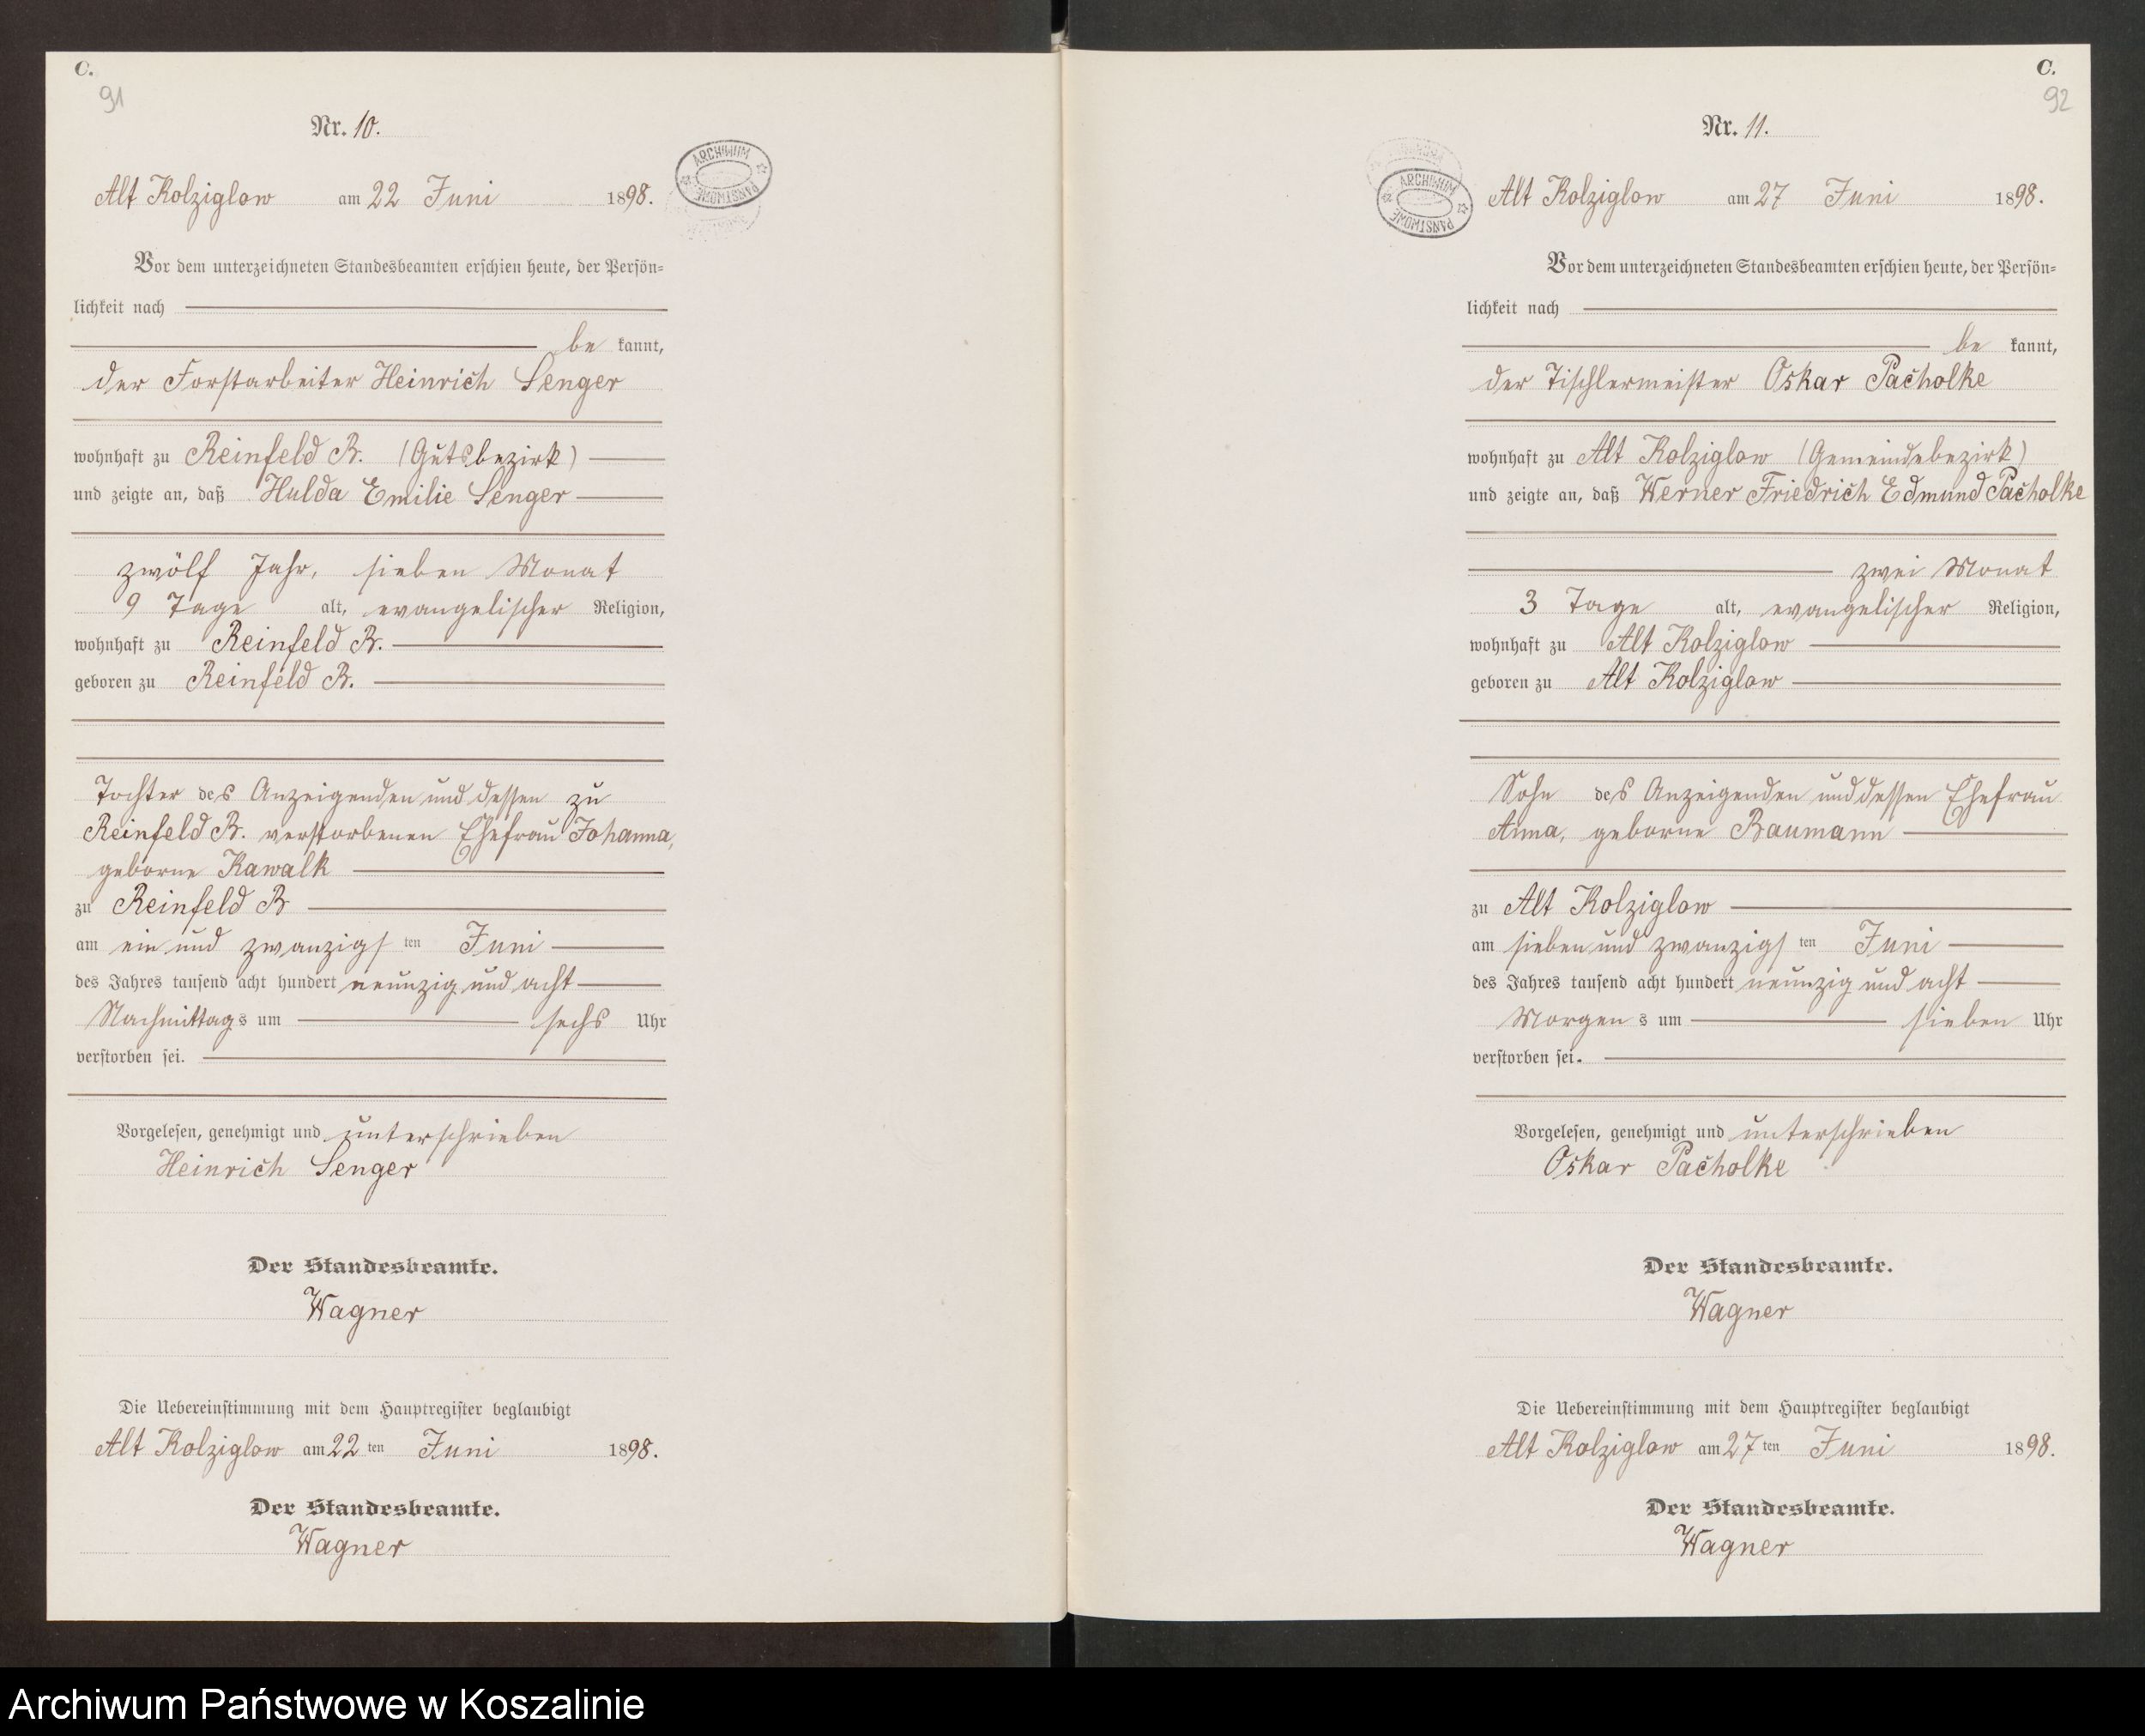 C.
91
Nr. 10.
ARCHIWUM PAŃSTWOWE
Alt Kolziglow am 22 Juni 1898.
Vor dem unterzeichneten Standesbeamten erschien heute, der Persön=
lichkeit nach
be kannt,
der Forstarbeiter Heinrich Senger
wohnhaft zu Reinfeld B. (Gutsbezirk)
und zeigte an, daß Hulda Emilie Senger
zwölf Jahr, sieben Monat
9 Tage alt, evangelischer Religion,
wohnhaft zu Reinfeld B.
geboren zu Reinfeld B.
Tochter des Anzeigenden und dessen zu
Reinfeld B. verstorbenen Ehefrau Johanna,
geborne Kawalk
zu Reinfeld B
am ein und zwanzigsten Juni
des Jahres tausend acht hundert neunzig und acht
Nachmittags um sechs Uhr
verstorben sei.
Vorgelesen, genehmigt und unterschrieben
Heinrich Senger
Der Standesbeamte.
Wagner
Die Uebereinstimmung mit dem Hauptregister beglaubigt
Alt Kolziglow am 22 ten Juni 1898.
Der Standesbeamte.
Wagner
C.
92
Nr. 11.
ARCHIWUM PAŃSTWOWE
Alt Kolziglow am 27 Juni 1898.
Vor dem unterzeichneten Standesbeamten erschien heute, der Persön=
lichkeit nach
be kannt,
der Tischlermeister Oskar Pacholke
wohnhaft zu Alt Kolziglow (Gemeindebezirk)
und zeigte an, daß Werner Friedrich Edmund Pacholke
zwei Monat
3 Tage alt, evangelischer Religion,
wohnhaft zu Alt Kolziglow
geboren zu Alt Kolziglow
Sohn des Anzeigenden und dessen Ehefrau
Anna, geborne Baumann
zu Alt Kolziglow
am sieben und zwanzigsten Juni
des Jahres tausend acht hundert neunzig und acht
Morgens um sieben Uhr
verstorben sei.
Vorgelesen, genehmigt und unterschrieben
Oskar Pacholke
Der Standesbeamte.
Wagner
Die Uebereinstimmung mit dem Hauptregister beglaubigt
Alt Kolziglow am 27 ten Juni 1898.
Der Standesbeamte.
Wagner
Archiwum Państwowe w Koszalinie